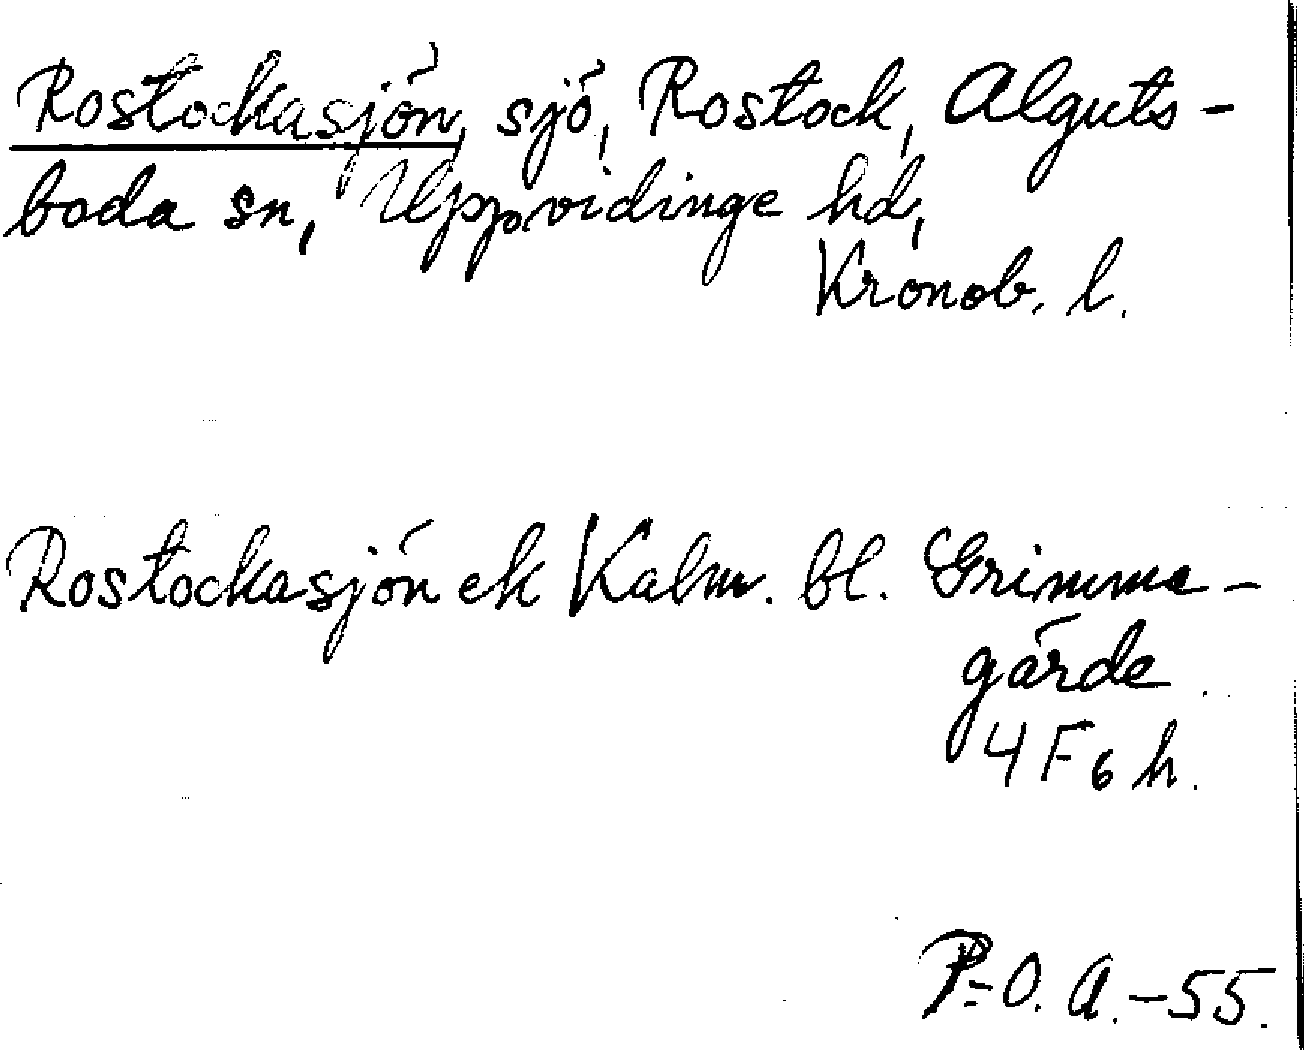 Rostockasjön, sjö, Rostock, Alguts-
boda sn, Uppvidinge hd,
Kronob. l.
Rostockasjön ek Kalm. bl. Grimma-
gärde
4 F 6 h.
P-O. A.-55.